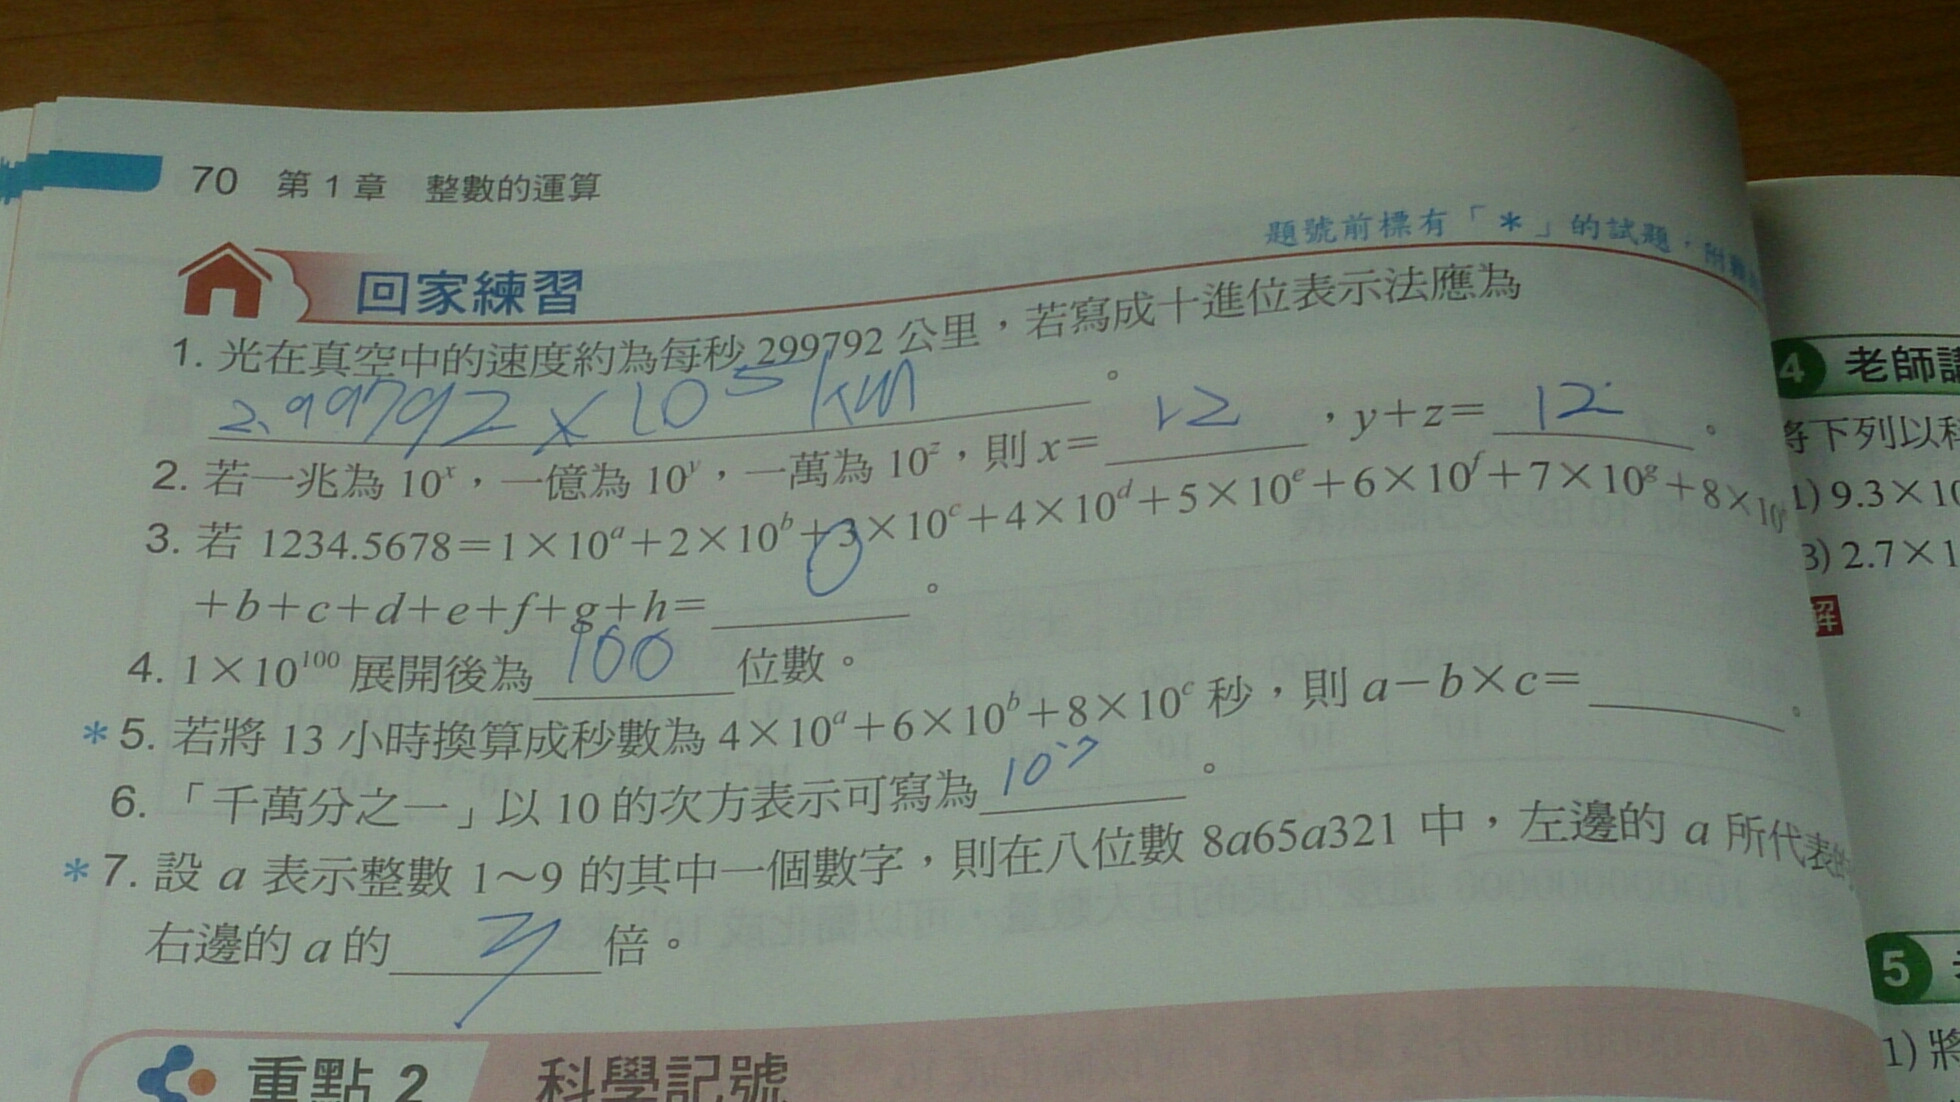 70 第1章 整數的運算
題號前標有「*」的試題,附
回家練習
1. 光在真空中的速度約為每秒 299792 公里,若寫成十進位表示法應為
2.99792×10⁵ km。
2. 若一兆為 10ˣ,一億為 10ʸ,一萬為 10ᶻ,則 x= 12,y+z= 12。
3. 若 1234.5678=1×10ᵃ+2×10ᵇ+3×10ᶜ+4×10ᵈ+5×10ᵉ+6×10ᶠ+7×10ᵍ+8×10
+b+c+d+e+f+g+h= 0。
4. 1×10¹⁰⁰ 展開後為 100 位數。
*5. 若將 13 小時換算成秒數為 4×10ᵃ+6×10ᵇ+8×10ᶜ 秒,則 a-b×c=。
6. 「千萬分之一」以 10 的次方表示可寫為 10⁻⁷。
*7. 設 a 表示整數 1~9 的其中一個數字,則在八位數 8a65a321 中,左邊的 a 所代表的
右邊的 a 的 倍。
重點2 科學記號
4 老師講
將下列以科
1) 9.3×10
3) 2.7×1
解
5
1) 將